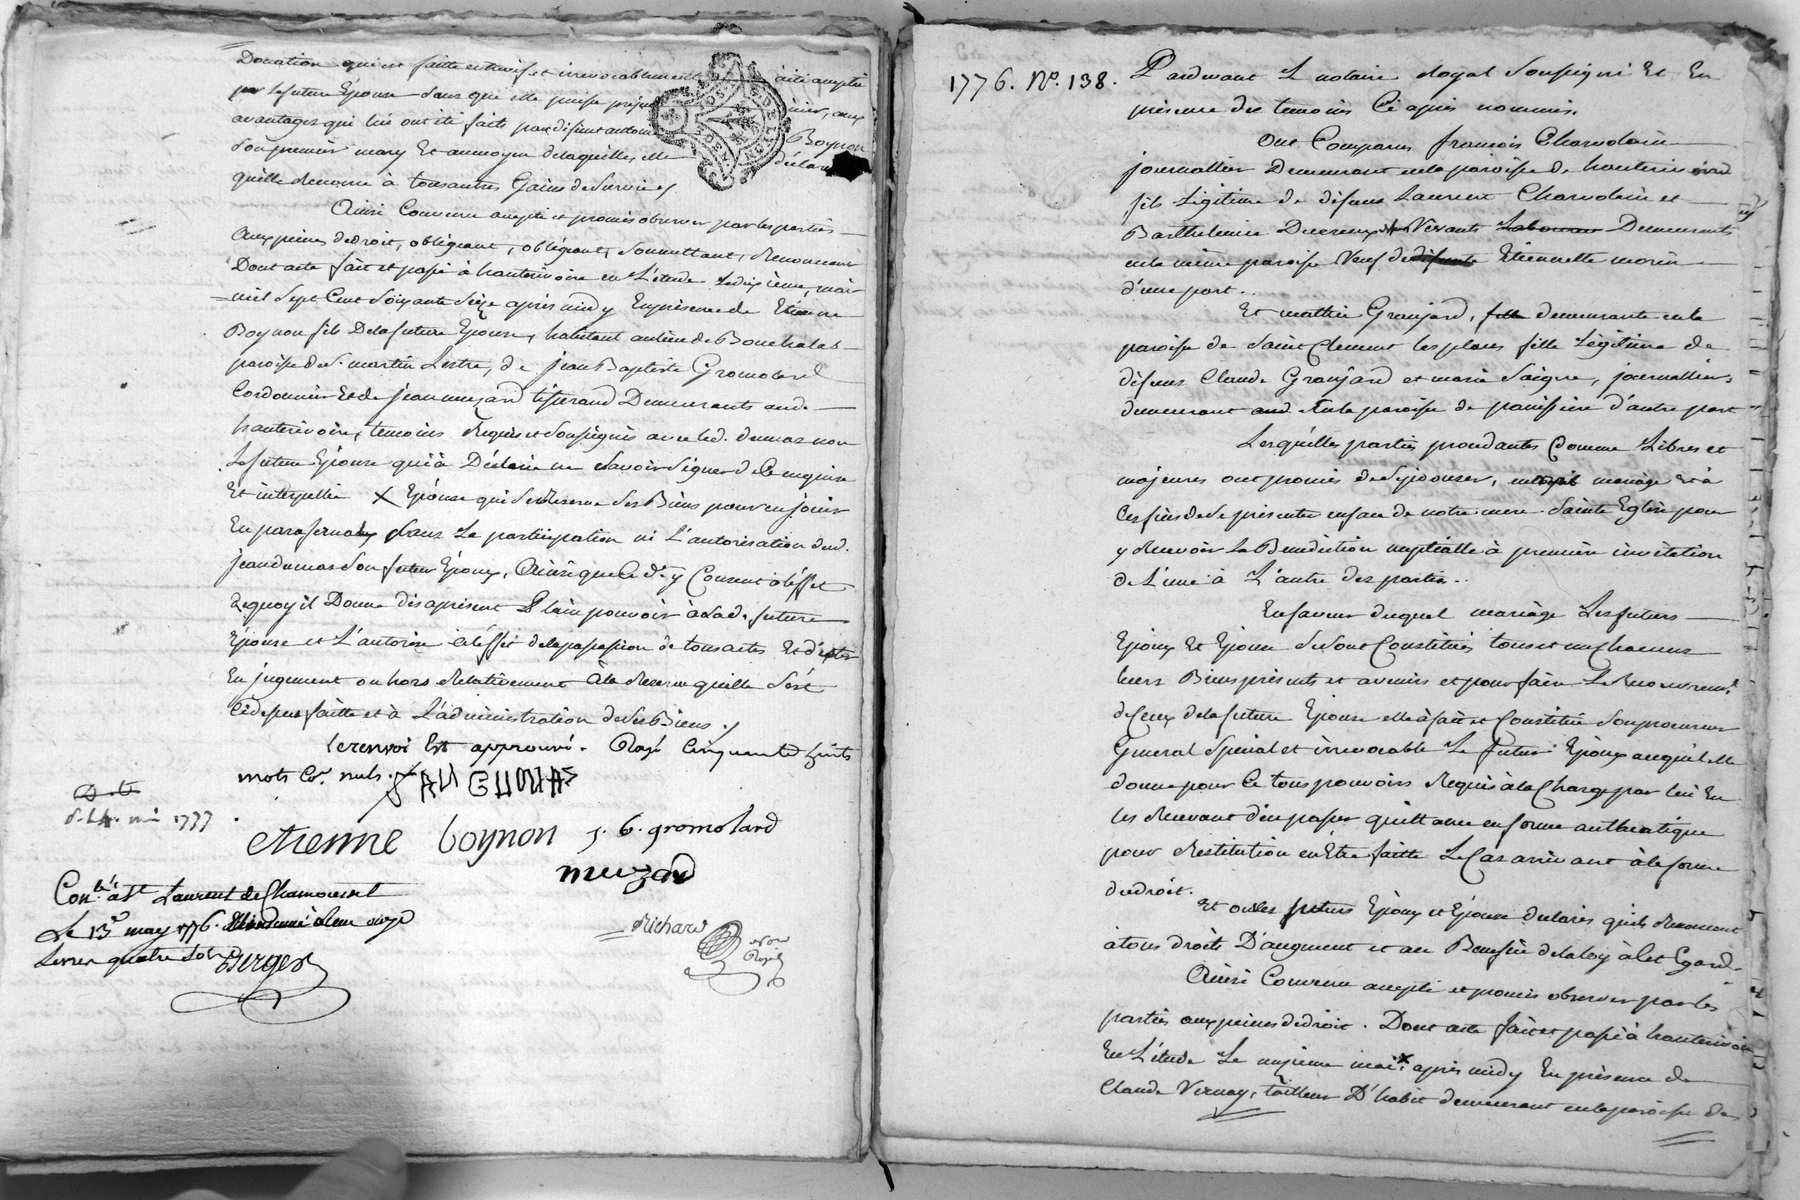 Donation qui est faitte entrevif et irrevocablement acité accepté
par la future Epouse sans que elle puisse prejudicier, aux
avantages qui lui ont eté faits par defunt antoine Boynon
Son premier mary Et au moyen de laquelle, elle déclare
quelle renonce à tous autres Gains de Survie,
Ainsi Convenu accepté et promis observer par les parties
aux peines de droit, obligeant, obligeant, Soumettant, Renonceant
Dont acte fait et passé à hauterivoire en L'étude Le dixième mai
mil Sept Cent Soixante Seize après midy En presence de Etienne
Boynon fils De la future Epouse, habitant au lieu de Bouchalas
paroisse de St. martin Lestra, de jean Baptiste Gromolard
Cordonnier Et de jean muzard tisserand Demeurants aud.
hauterivoire, temoins Requis et Soussignés avec led. dumas non
La future Epouse qui à Déclaré ne Savoir Signer de ce enquise
Et interpellée X Epouse qui Se Reserve Ses Biens pour en jouir
En parafernaux Sans La participation ni L'autorisation dud.
jean dumas Son futur Epoux, Ainsi que le d. y Consent à l'effet
de quoy il Donne dès apresent Plein pouvoir à Lad. future
Epouse et L'autorise à l'effet de la passation de tous actes Et d'ester
En jugement ou hors Relativement à la Reserve quelle S'est
Cidessus faitte et à L'administration de Ses Biens ./
le renvoi Est approuvé. Rayé Cinquante huits
mots Coe. nuls.
JAN DUMAS
d. 14. mai 1777
etienne boynon j. b. gromolard
muzard
Conlé. à St Laurent de Chamousset
Le 13e may 1776.
Livres quatre Sols Berger
Richard
no.re
Royal
1776. No. 138.
Pardevant Le notaire Royal Soussigné Et En
presence des temoins Ci après nommés.
Ont Comparus francois Charvolain
journallier Demeurant en la paroisse de hauterivoire
fils Légitime de défunt Laurent Charvolain et
Barthelemie Ducreux Vivante Laboureur Demeurants
en la même paroisse Veuf de défunte Etiennette morin
d'une part.
Et mathie Granjard, fille demeurante en la
paroisse de Saint Clement les places fille Légitime de
défunt Claude Granjard et marie Saigne, journalliers
demeurant aud. En la paroisse de panissiere d'autre part
Lesquelles parties procedantes Comme Libres et
majeures ont promis de S'epouser, en légit. mariage et à
Ces fins de Se presenter en face de notre mere Sainte Eglise pour
y Recevoir La Benediction nuptialle à première invitation
de L'une à L'autre des parties.
En faveur duquel mariage Les futurs
Epoux Et Epouse Se Sont Constitués tous et un Chacuns
leurs Biens présents et avenirs et pour faire Le Recouvremt.
de Ceux de la future Epouse elle à fait et Constitué Son procureur
General Special et irrevocable Le futur Epoux auquel elle
donne pour Ce tous pouvoirs Requis à la Charge par lui En
les Recevant d'en passer quittance en forme authentique
pour Restitution en Etre faitte Le Cas arrivant à la forme
du droit.
Et ont les futurs Epoux et Epouse declarés qu'ils Renoncent
à tous droits D'augment et au Benefice de la loy à Cet Egard
Ainsi Convenu accepté et promis observer par les
parties aux peines de droit. Dont acte fait et passé à hauterivoire
En L'étude Le onzieme mai X après midy En presence de
Claude Vernay, tailleur D'habit demeurant en la paroisse de